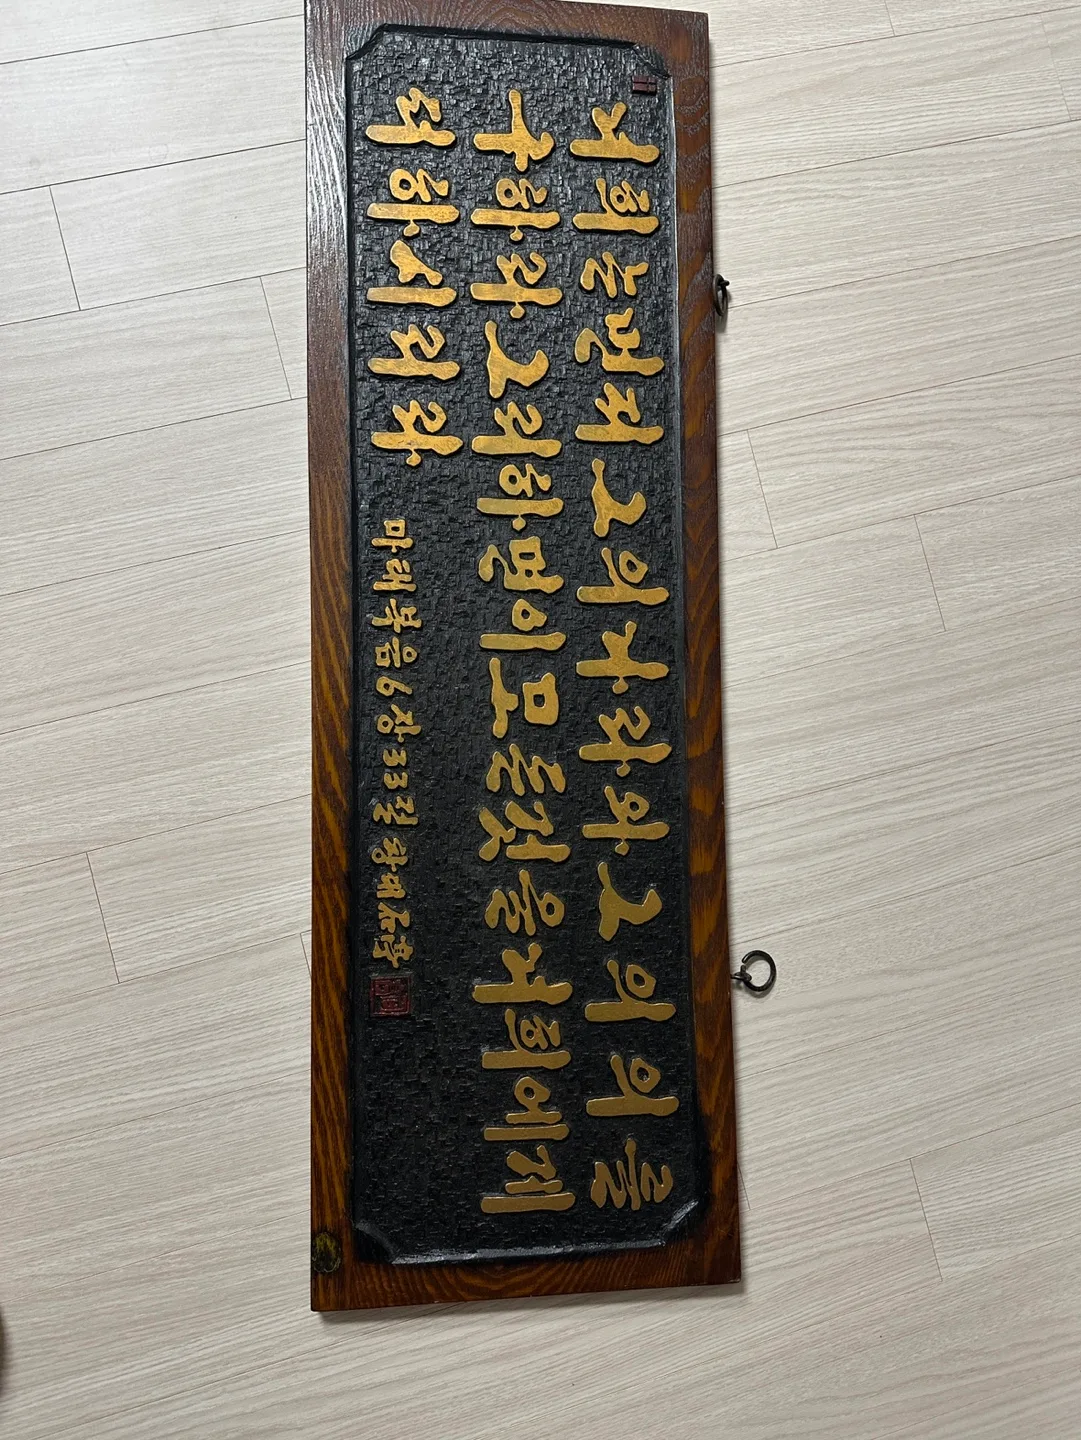 너희는먼저그의나라와그의의를
구하라그리하면이모든것을너희에게
더하시리라 마태복음6장33절